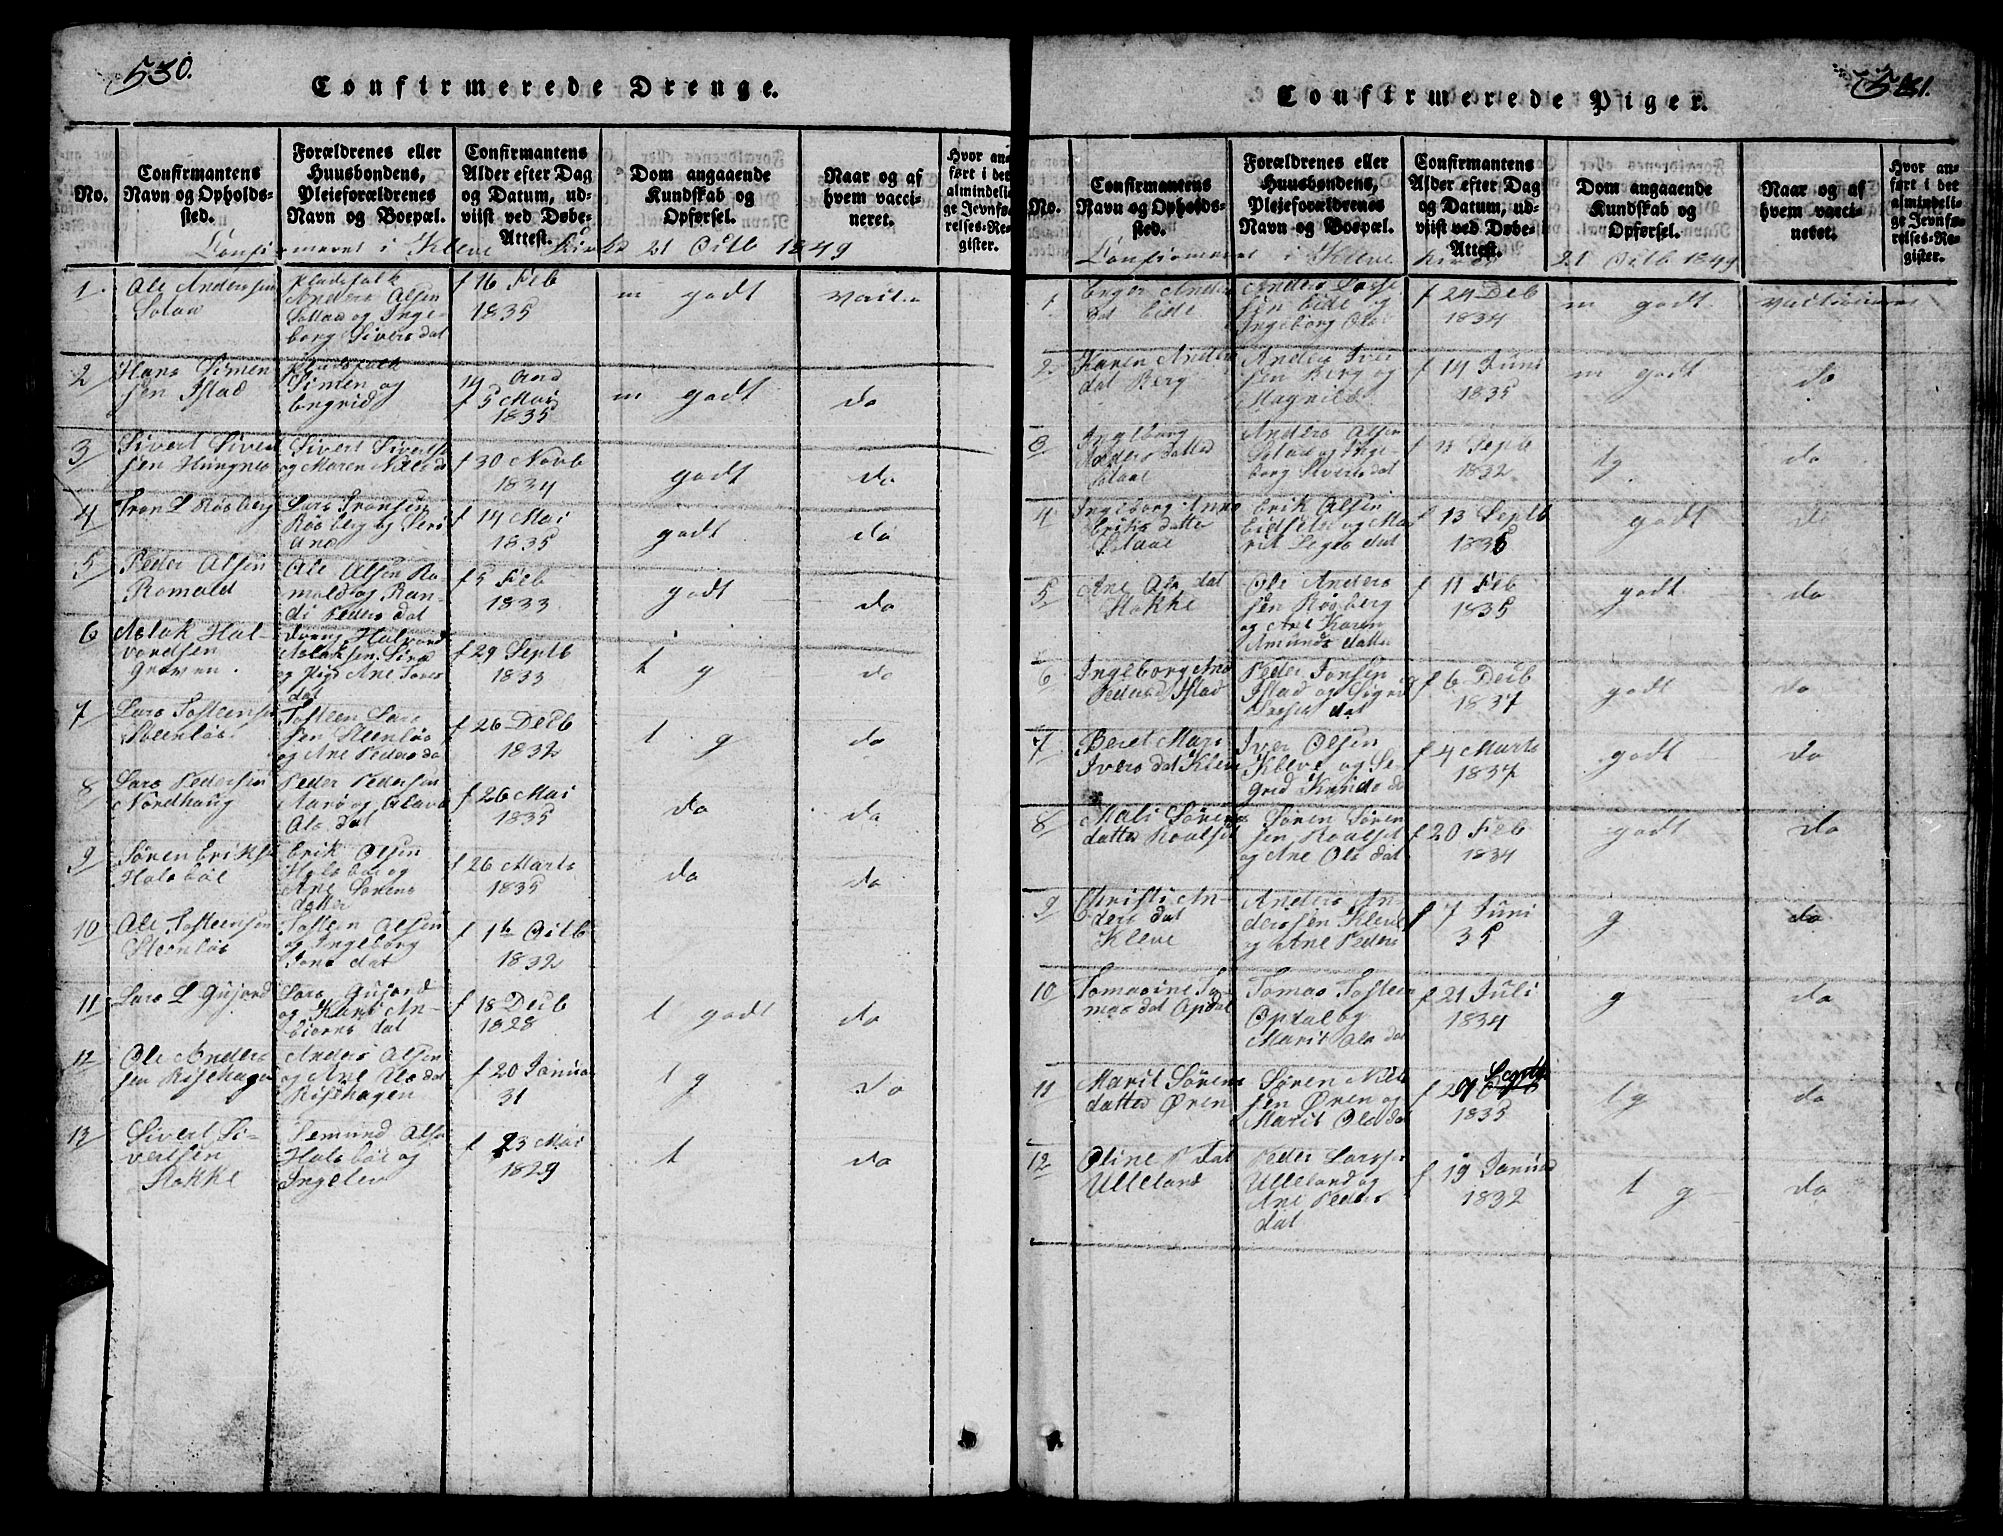 530.
Confirmerede Drenge.
No.
Confirmantens Navn og Opholdssted.
Forældrenes eller Huusbondens, Plejeforældrenes Navn og Boepæl.
Confirmantens Alder efter Dag og Datum, udviist ved Døbe-Attest.
Dom angaaende Kundskab og Opførsel.
Naar og af hvem vaccineret.
Hvor anført i det almindelige Jevnførelses-Register.
Confirmeret i Kleve Kirke 21 Octb 1849
1 Ole Andersen Solaas
Pladsfolk
Anders Olsen
og Ingeborg Sivers dat
f 16 Feb
1835
m godt
2 Hans Simensen Istad
Pladsfolk
Simen og
Ingrid
f 5 Mai
1835
m godt
do
3 Sivert Sivertsen
Sivert Siverts
og Maren Nils d
f 30 Novb
1834
godt
do
4 Tron L Røsberg
Lars Tronsen
Røsberg og
f 14 Mai
1835
godt
do
5 Peder Olsen
Romald
Ole Olsen Romald og Randi Peders dat
f 5 Feb
1833
godt
do
6 Aslak Halvordsen
Graven
Halvord
Aslaksen
og Pige Ane
dat
f 29 Septb
1833
t g
do
7 Lars Tosteensen
Steenløs
Tosteen Larssen Steenløs
og Ane Peders da
f 26 Decb
1832
t g
do
8 Lars Pedersen
Nordhaug
Peder Pedersen
Aarø og
Ols dat
f 26 Mai
1835
do
do
9 Søren Eriks
Halsbøe
Erik Olsen
Halsbøe og
Ane Sørens
datter
f 26 Marts
1835
do
do
10 Ole Tosteensen
Steenløs
Tosteen Olsen
og Ingeborg
Jons dat
f Octb
1832
11 Lars L Gujord
Lars Gujord
og Kari Anbiørns dat
f 18 Decb
1828
t godt
do
12 Ole Anderssen Risthagen
Anders Olsen
og Ane Ols dat
Risthagen
f 20 Janua
31
t g
do
13 Sivert Sivertsen
Hokke
Semund Ols
Halsbøe og
Ingeleiv
f 23 Mai
1829
t
do
531.
Confirmerede Piger.
No.
Confirmantens Navn og Opholdssted.
Forældrenes eller Huusbondens, Plejeforældrenes Navn og Boepæl.
Confirmantens Alder efter Dag og Datum, udviist ved Døbe-Attest.
Dom angaaende Kundskab og Opførsel.
Naar og af hvem vaccineret.
Hvor anført i det almindelige Jevnførelses-Register.
Confirmeret i Kleve Kirke 21 Octb 1849
1 Anders
dat Eide
Anders Lassesen Eide og
Ingeborg Ols
f 24 Deb
1834
m godt
2 Karen Anders
dat Berg
Anders Iversen Berg og
Magnild
f 14 Juni
1835
m godt
do
3 Ingeborg
Anders datter
Solaas
Anders Olsen
Solaas og Ingeborg Siverts dat
f 11 Septb
1832
tg.
do
4 Ingeborg Anne
Eriks datter
Solaas
Erik Olsen
Eidseter og Marit
dat
f 13 Septb
1835
godt
do
5 Ane Ols dat
Hokke
Ole Anderssen Røsberg
og Ane Karen
Amunds datter
f 11 Feb
1835
godt
do
6 Ingeborg Ane
Istad
Peder Jonsen
Istad og Sigrid
dat
f 6 Decb
1834
godt
do
7 Beret Mari
Ivers dat Kleve
Iver Olsen
Kleve og Segrid Knuds d
f 4 Marts
1834
godt
do
8 Mali Sørens
datter Roalset
Søren Sørensen Roalset
og Ane Ols dat
f 20 Feb
1834
godt
do
9 Christi Anders dat
Kleve
Anders Anderssen Kleve
og Ane Peders
f 7 Juni
35
g
do
10 Tomasine Tomas dat Opdal
Tomas Tosteen
Opdal og
Marit Ols dat
f 21 Juli
1834
g
do
11 Marit Sørens
datter Øren
Søren Nilssen Øren og
Marit Ols da
f 29 Septb
1835
tg
do
12 Oline P dat
Ulleland
Peder Larssen
Ulleland og
Ane Peders
dat
f 19 Januar
1832
t g
do